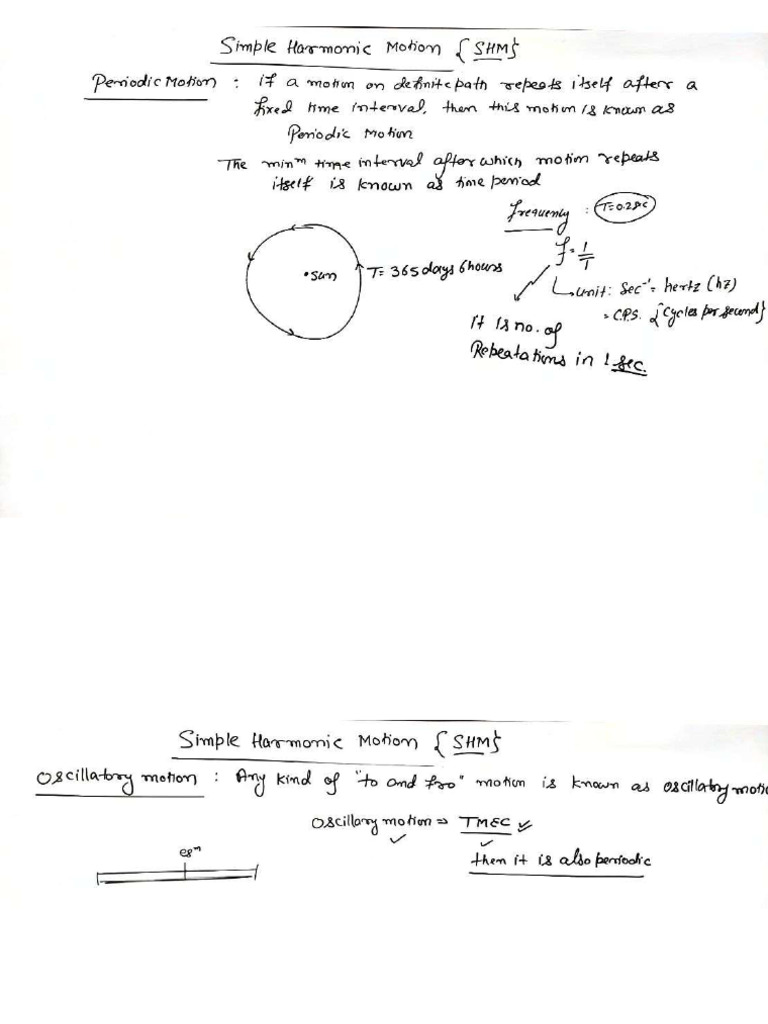 Simple Harmonic Motion {SHM}
Periodic Motion : if a motion on definite path repeats itself after a
fixed time interval, then this motion is known as
Periodic Motion
The minᵐ time interval after which motion repeats
itself is known as time period
frequency : T=0.2sec
f = 1/T
unit: sec⁻¹ = hertz (hz)
= C.P.S. {Cycles per second}
It is no. of
Repeatations in 1 sec.
•sun
T= 365 days 6 hours
Simple Harmonic Motion {SHM}
Oscillatory motion : Any kind of "to and fro" motion is known as oscillatory motio
Oscillary motion ⇒ TMEC ✓
✓
✓
then it is also periodic
eqᵐ